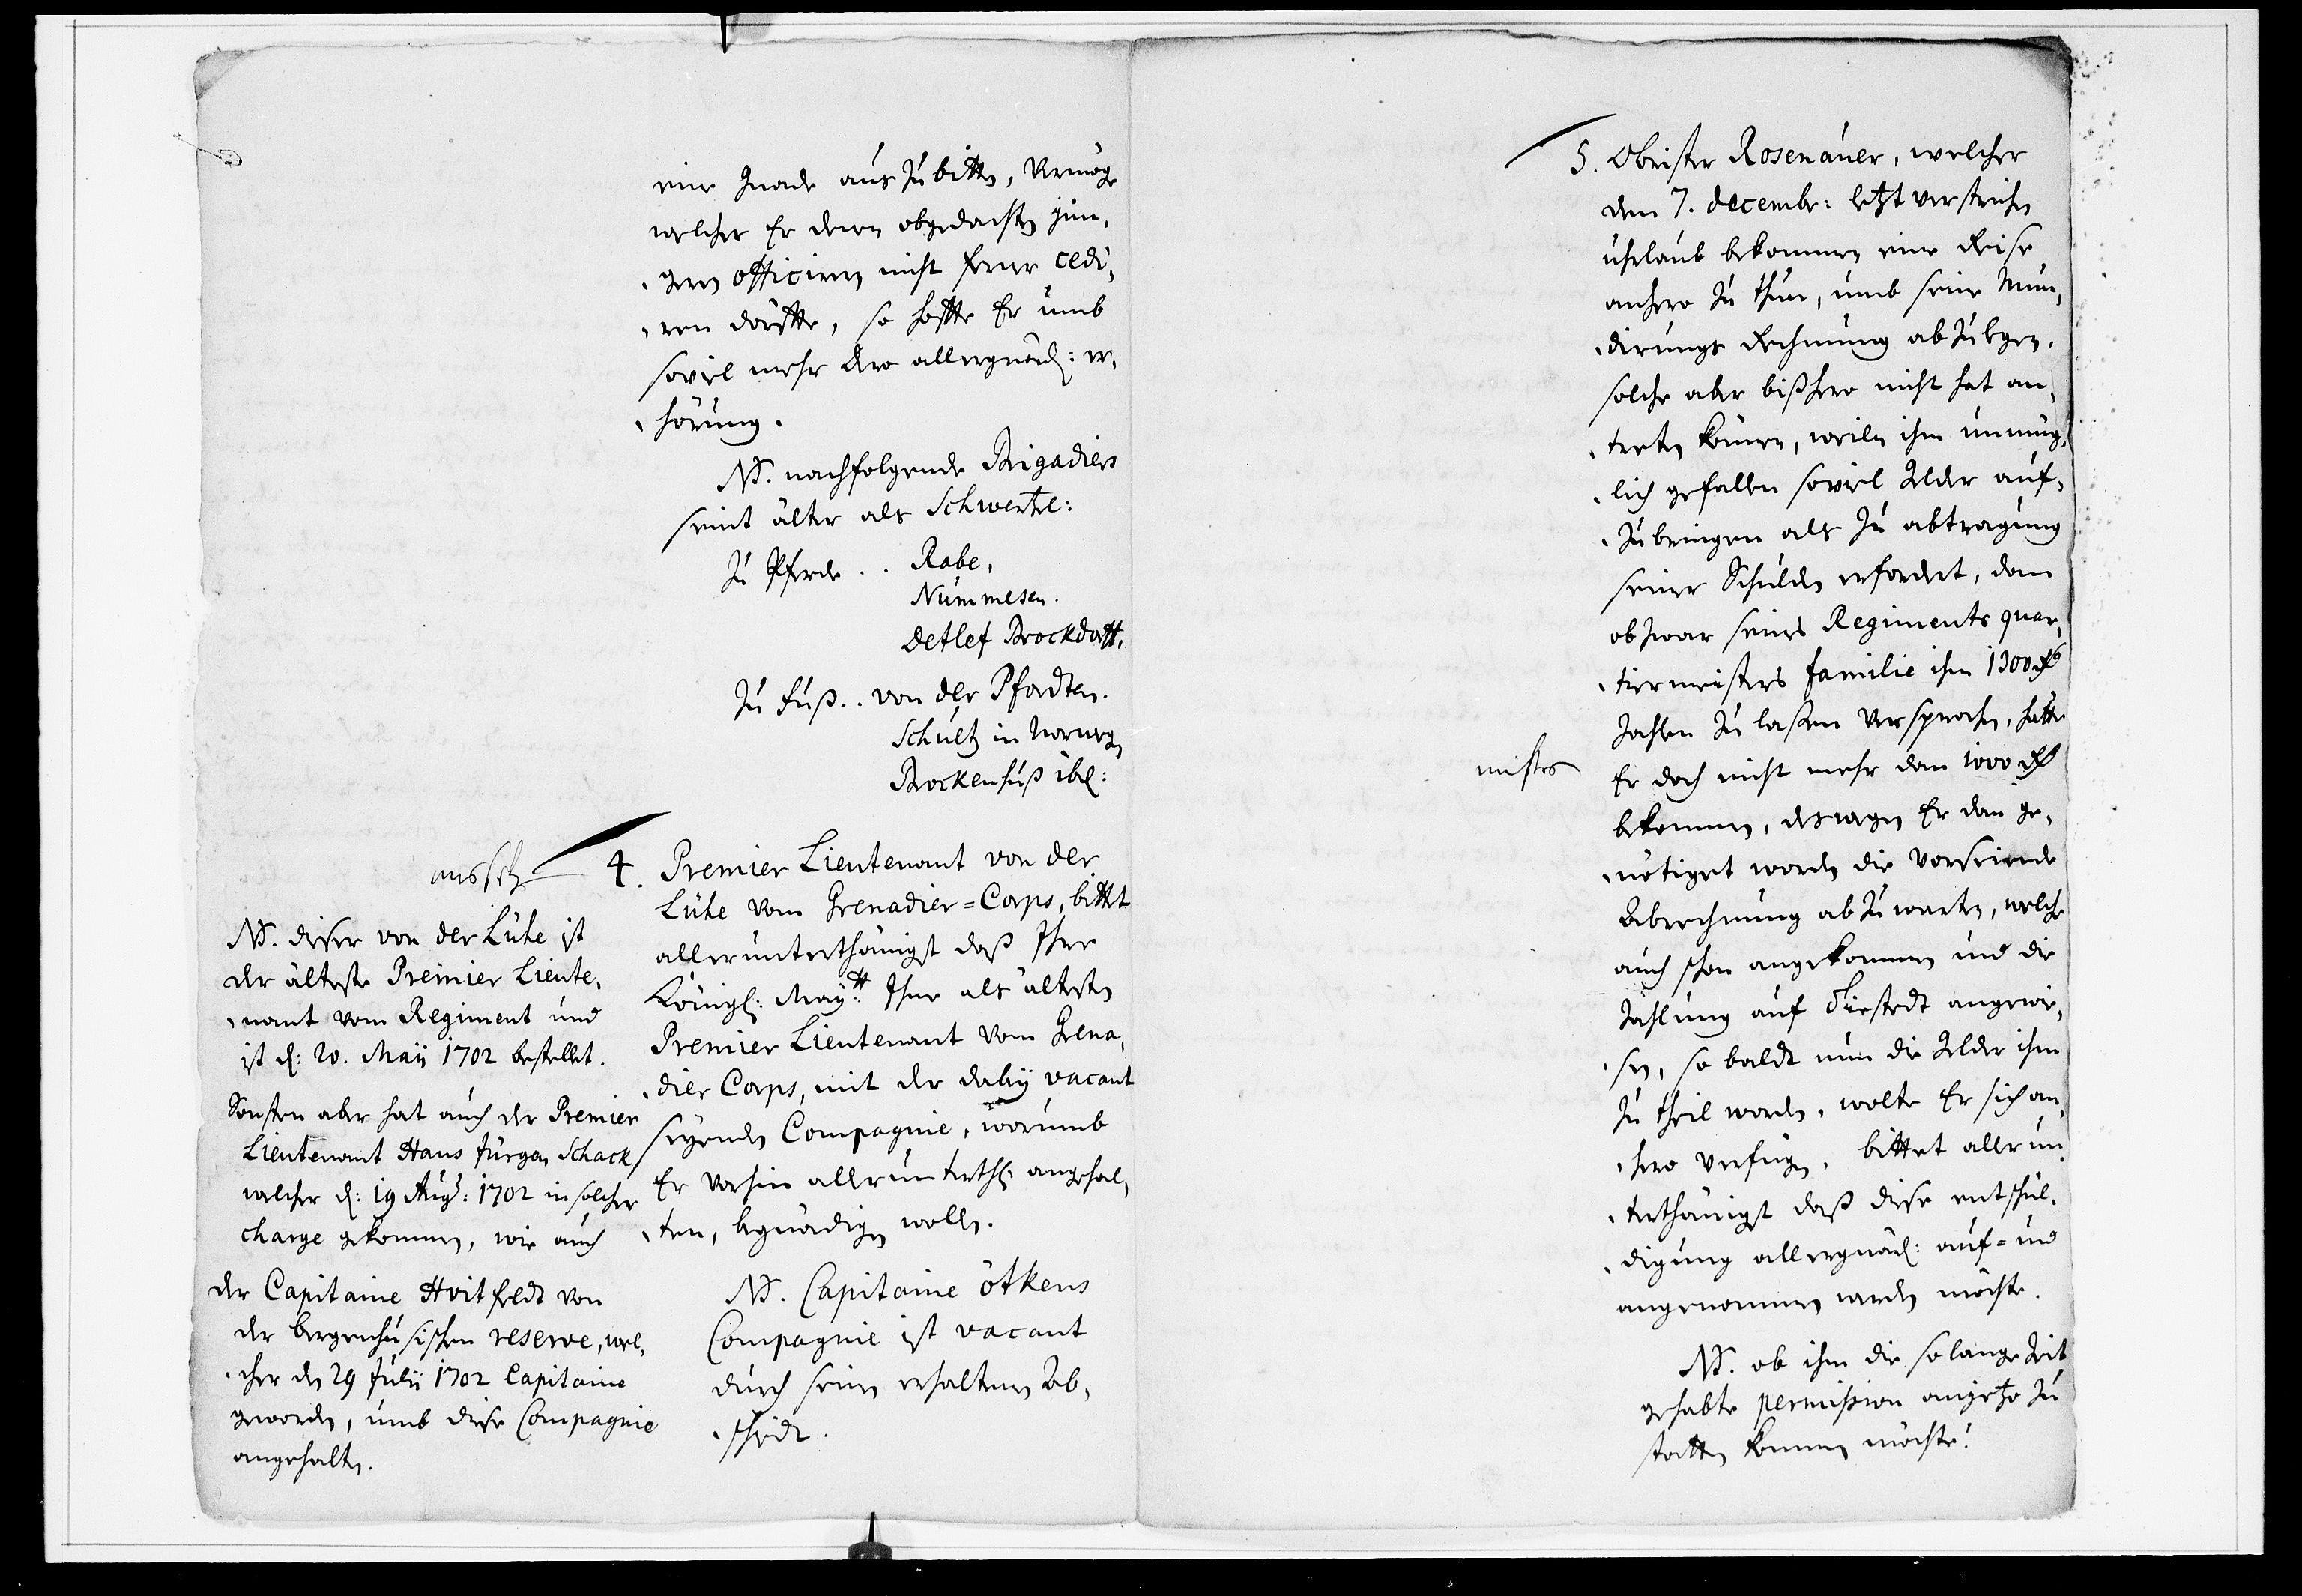 eine Gnade aus zu bitten, Vermöge
welcher Er denen obgedachten jün,
gern officirern nicht ferner cedi,
ren dörffte, so hoffte Er umb
soviel mehr dero allergnäd: er,
hörung.
NB. nachfolgende Brigadiers
seint älter als Schwertzel:
Zu Pferde . . Rabe,
Nummesen.
Detlef Brockdorff.
Zu Fuß . . von der Pfordten.
Schultz in Norwegen
Brockenhuß ibid:
4. Premier Lieutenant von der
Lühe vom Grenadier=Corps, bittet
allerunterthänigst daß Ihre
Königl: Mayt: Ihne als ältesten
Premier Lieutenant vom Grena,
dier Corps, mit der dabeÿ vacant
seÿenden Compagnie, warumb
Er vorhin allerunterth: angehal,
ten, begnädigen wollen.
NB. Capitaine ötkens
Compagnie ist vacant
durch seinen erhaltenen Ab,
scheidt.
NB. dieser von der Lühe ist
der älteste Premier Lieute,
nant vom Regiment und
ist d: 20. Maij 1702 bestellet.
Sonsten aber hat auch der Premier
Lieutenant Hans Jürgen Schack
welcher d: 19 Aug: 1702 in solcher
charge gekommen, wie auch
der Capitaine Hvitfeldt von
der bergenhusischen reserve, wel,
cher den 29 Julii 1702 Capitaine
geworden, umb diese Compagnie
angehalten.
5. Obrister Rosenauer, welcher
den 7. decembr: letzt verstrichen
uhrlaub bekommen eine Reise
anhero zu thun, umb seine Mun,
dirungs Rechnung abzulegen,
solche aber bißhero nicht hat an,
treten können, weilen ihm unmüg,
lich gefallen soviel Gelder auf,
zubringen als zu abtragung
seiner Schulden erfordert, dann
ob zwar seines Regiments quar,
tiermeisters familie ihm 1300 Rd
Zahlen zu laßen Versprochen, hätte
Er doch nicht mehr dann 1000 Rd
bekommen, deswegen Er dan ge,
nötiget worden die Vorseiende
Abrechnung abzuwarten, welche
auch schon angekommen und die
Zahlung auf angewie,
sen, so baldt nun die Gelder ihm
zu theil worden, wolte Er sich an,
hero verfügen, bittet allerun,
terthänigst daß diese entschul,
digung allergnäd: auf= und
angenommen werden möchte.
NB. ob ihm die so lange Zeit
gehabte permißion anjetzo zu
statten kommen möchte!